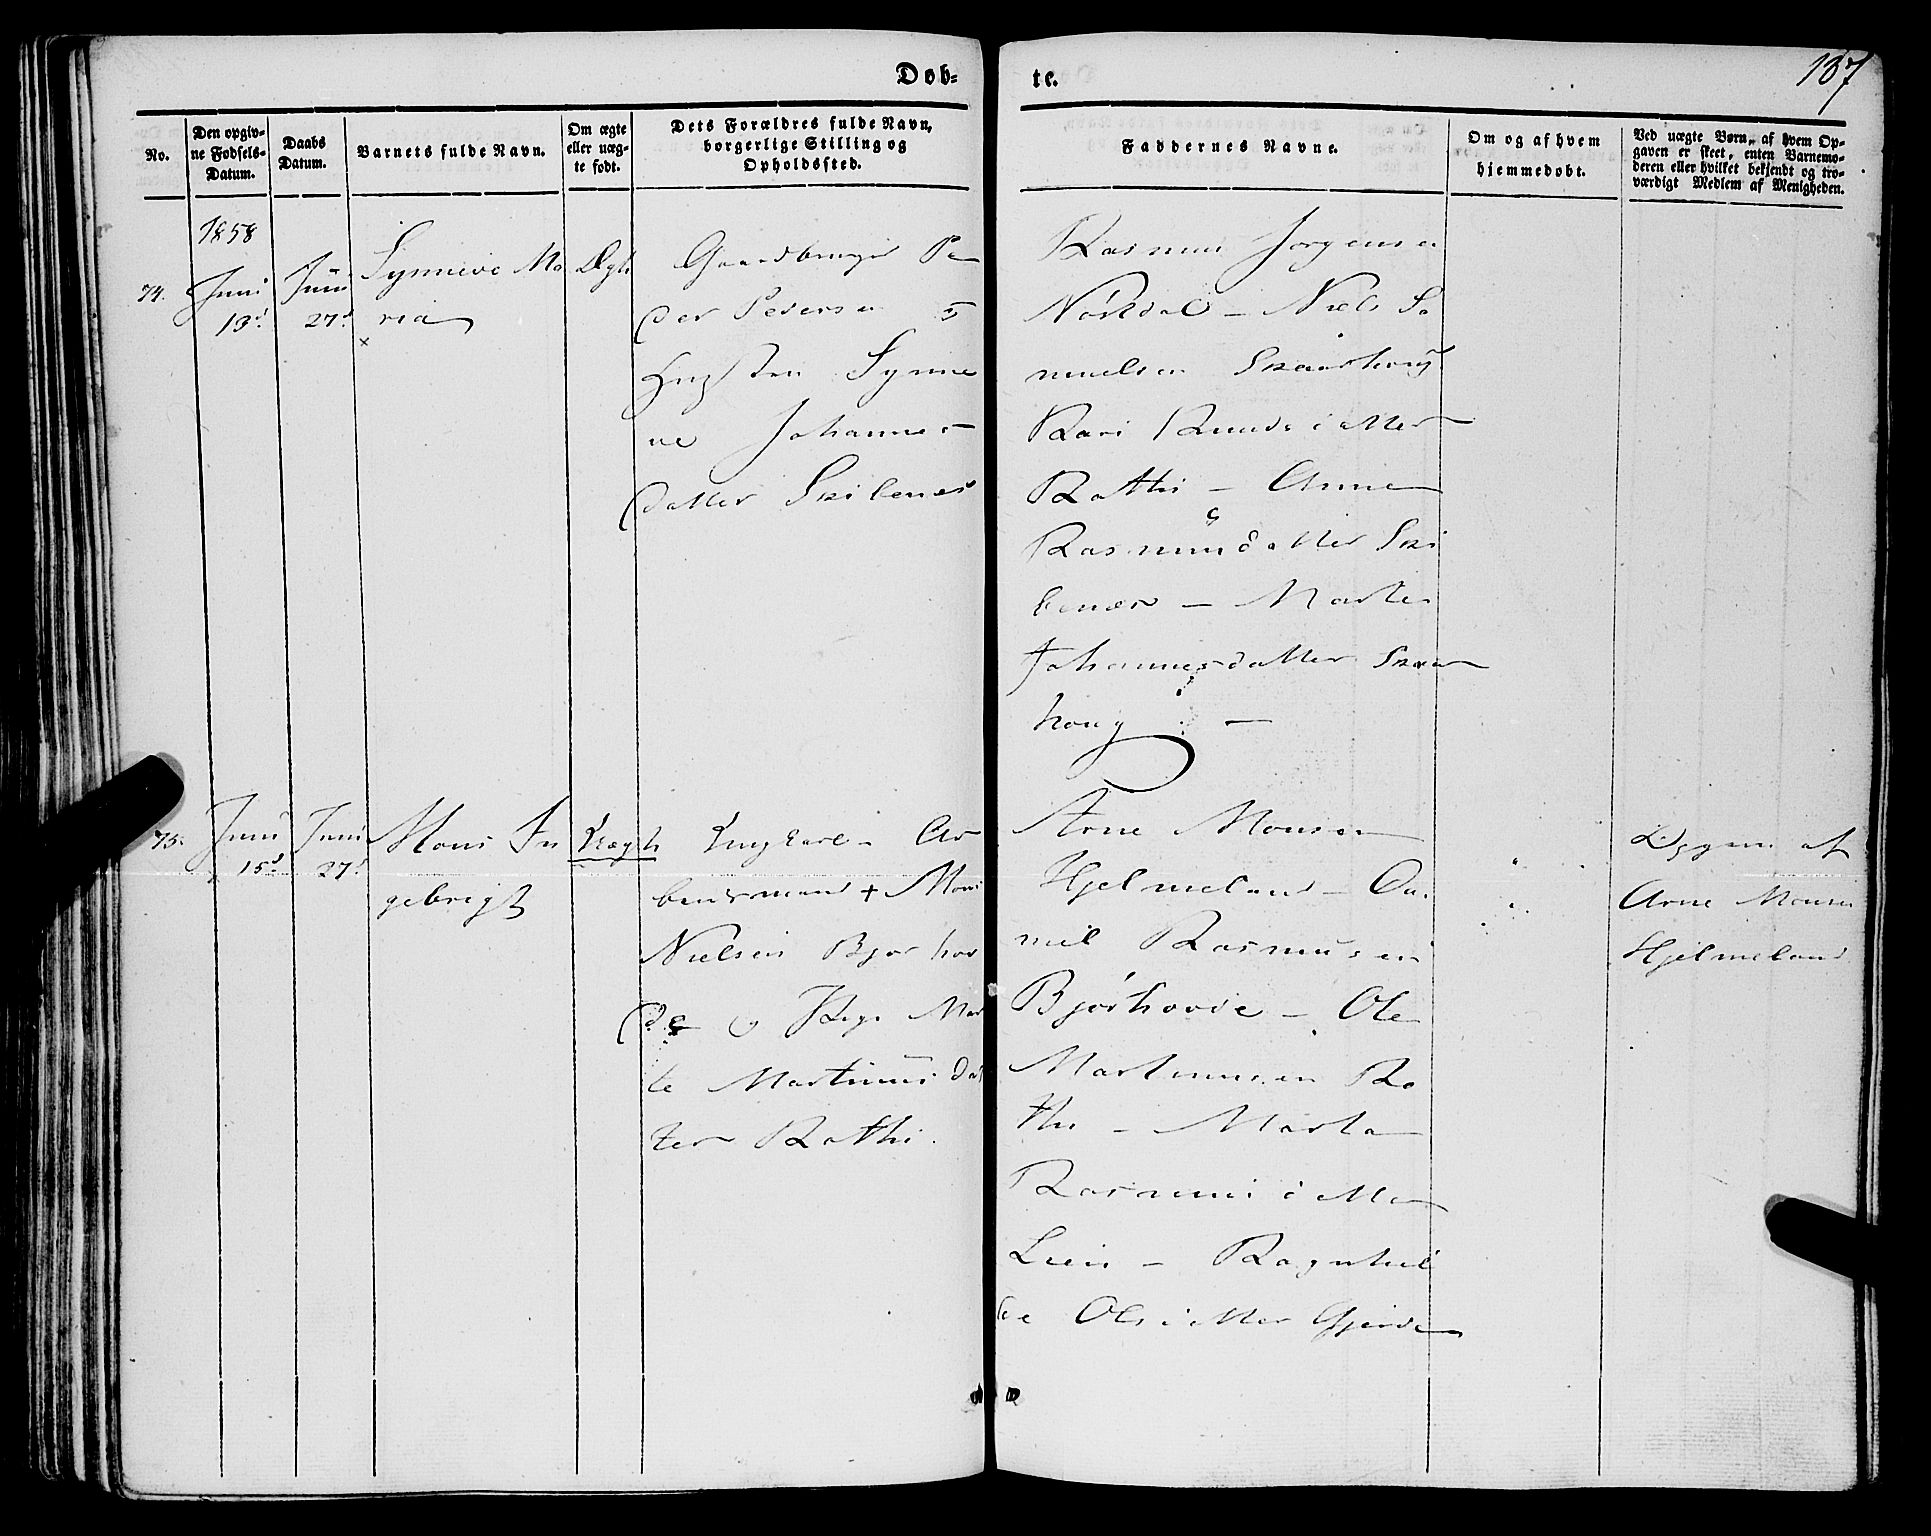 Døb-
te.
187
No.
Den opgiv-
ne Fødsels-
Datum.
Daabs
Datum.
Barnets fulde Navn.
Om ægte
eller uæg-
te født.
Dets Forældres fulde Navn,
borgerlige Stilling og
Opholdssted.
Faddernes Navne.
Om og af hvem
hjemmedøbt.
Ved uægte Børn, af hvem Op-
gaven er skeet, enten Barnemo-
deren eller hvilket bekjendt og tro-
værdigt Medlem af Menigheden.
1858
74.
Juni
13d.
Juni
27d.
Synneve Ma
ria
Ægte
Gaardbruger Pe
der Pedersen
Hustru Synne
ve Johannes
datter Skilbenes
Rasmus Jørgensen
Nørdal - Niels Sa
muelsen Skaarhoug
Kari Knudsdatter
Røtthi - Anne
Rasmusdatter Ski
benæs - Marte
Johannesdatter Skaar
houg -
75.
Juni
15d
Juni
27d
Mons In
gebrigt
Uægte
Ungkarl - Ar
beidsmand + Mons
Nielsen Bjørhov
de og Pige Mar
te Martinusdat
ter Røtthi.
Arne Monsen
Hjelmeland - Da
niel Rasmusen
Bjørhovde - Ole
Martinusen Rø
thi - Marta
Rasmusdatter
Lien - Ragnhil
de Olsdatter Gjerde
"
"
Opgivet af
Arne Monsen
Hjelmeland